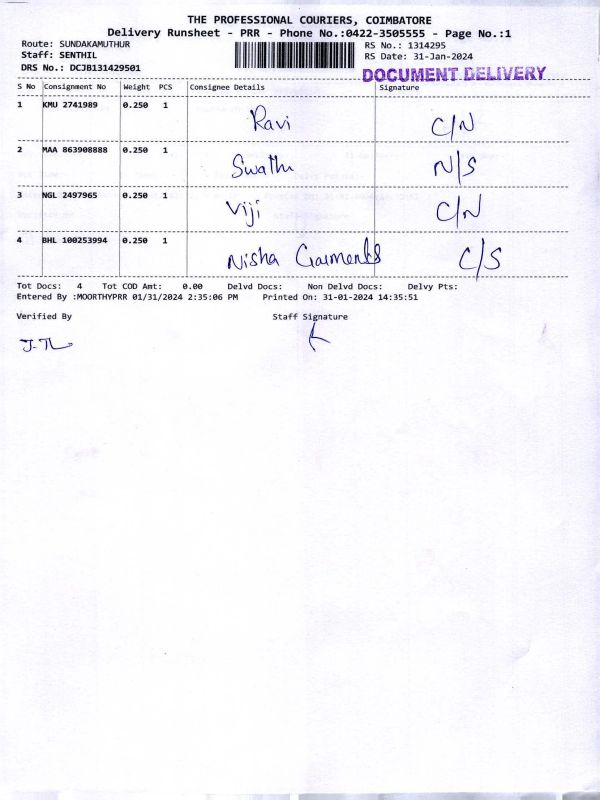 THE PROFESSIONAL COURIERS, COIMBATORE
Delivery Runsheet - PRR - Phone No.:0422-3505555 - Page No.:1
Route: SUNDAKAMUTHUR RS No.: 1314295
Staff: SENTHIL RS Date: 31-Jan-2024
DRS No.: DCJB131429501
DOCUMENT DELIVERY
S No Consignment No Weight PCS Consignee Details Signature
1 KMU 2741989 0.250 1 Ravi C/N
2 MAA 863908888 0.250 1 Swathi N/S
3 NGL 2497965 0.250 1 Viji C/N
4 BHL 100253994 0.250 1 Nisha Garments C/S
Tot Docs: 4 Tot COD Amt: 0.00 Delvd Docs: Non Delvd Docs: Delvy Pts:
Entered By :MOORTHYPRR 01/31/2024 2:35:06 PM Printed On: 31-01-2024 14:35:51
Verified By Staff Signature